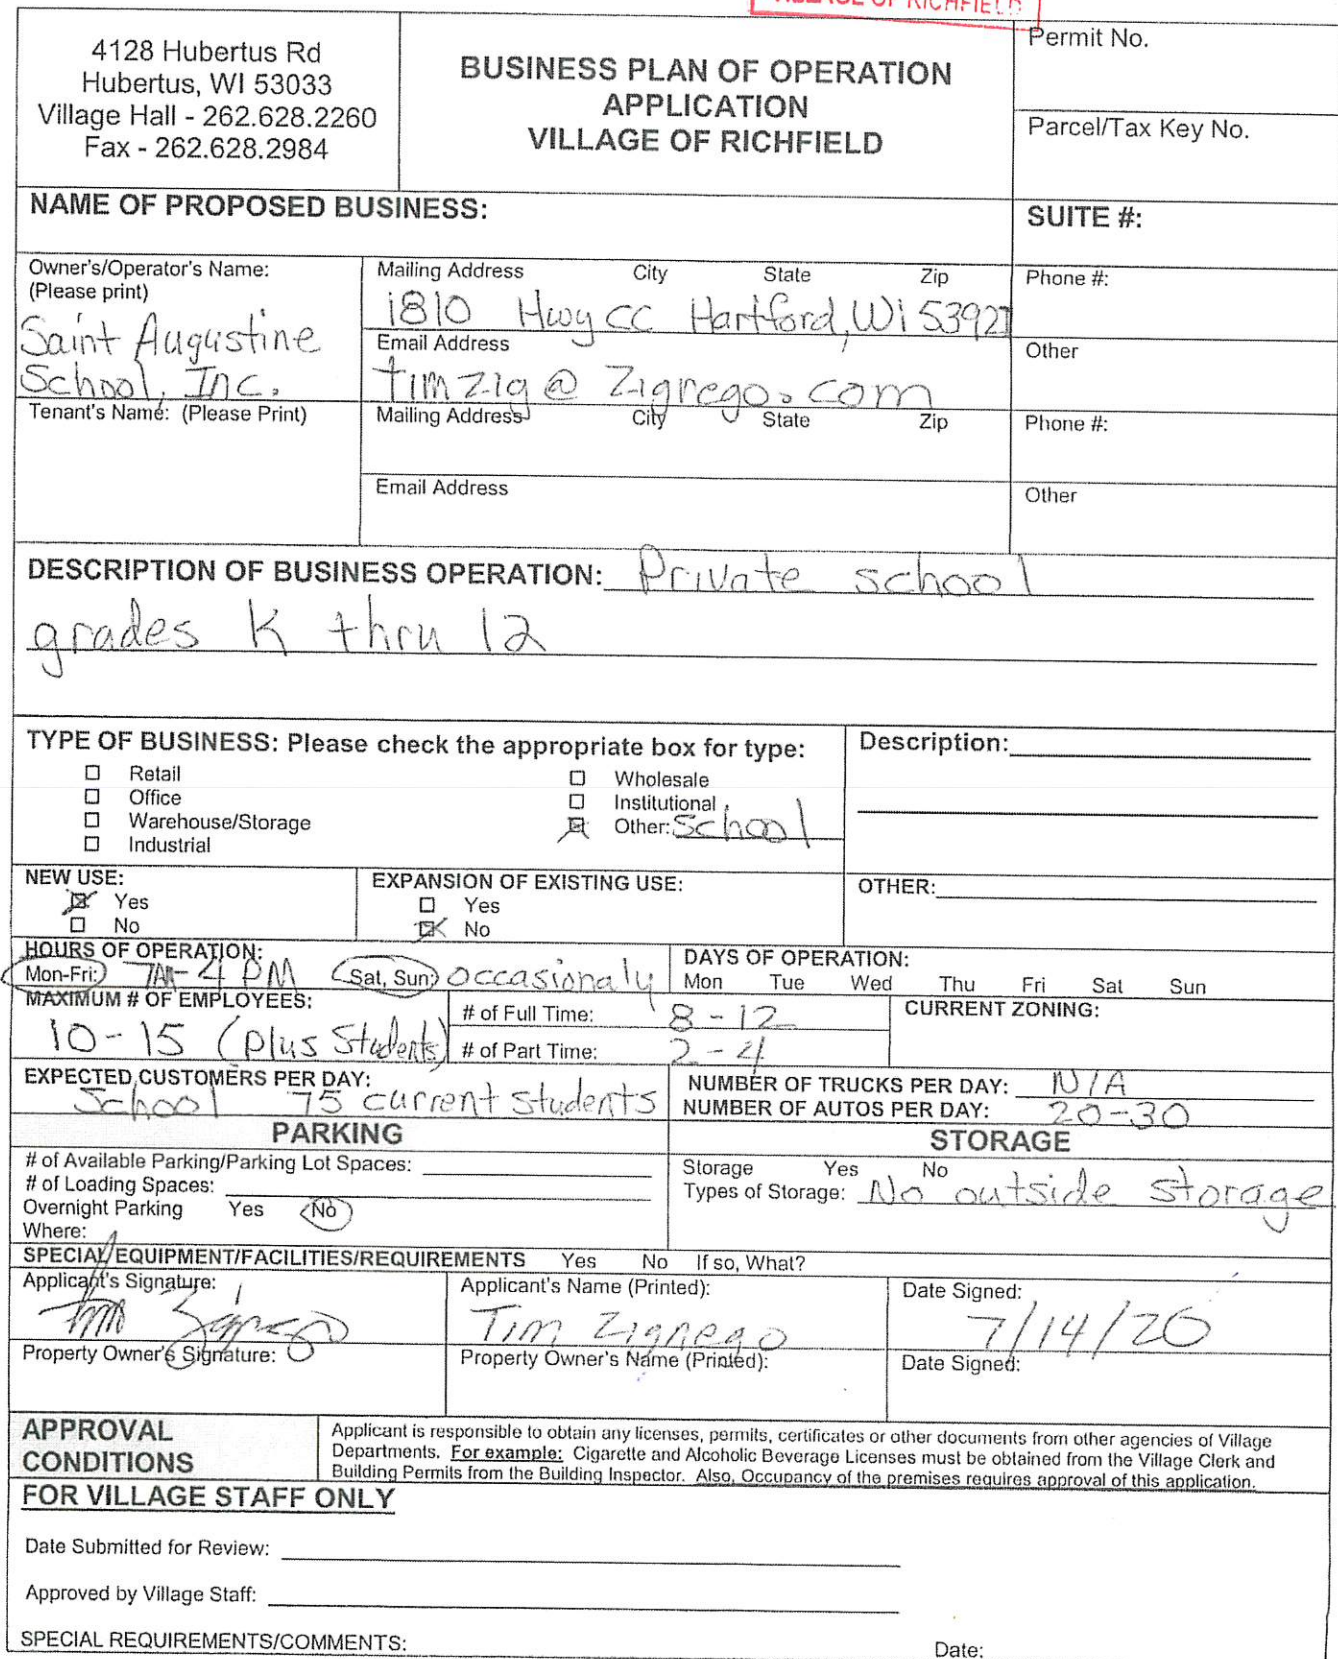 VILLAGE OF RICHFIELD
4128 Hubertus Rd
Hubertus, WI 53033
Village Hall - 262.628.2260
Fax - 262.628.2984
BUSINESS PLAN OF OPERATION
APPLICATION
VILLAGE OF RICHFIELD
Permit No.
Parcel/Tax Key No.
NAME OF PROPOSED BUSINESS:
SUITE #:
Owner's/Operator's Name:
(Please print)
Saint Augustine
School, Inc.
Mailing Address City State Zip
1810 Hwy CC Hartford, Wi 53927
Email Address
timzig@zignego.com
Phone #:
Other
Tenant's Name: (Please Print)
Mailing Address City State Zip
Email Address
Phone #:
Other
DESCRIPTION OF BUSINESS OPERATION: Private school
grades K thru 12
TYPE OF BUSINESS: Please check the appropriate box for type:
Retail
Office
Warehouse/Storage
Industrial
Wholesale
Institutional
Other: School
Description:
NEW USE:
Yes
No
EXPANSION OF EXISTING USE:
Yes
No
OTHER:
HOURS OF OPERATION:
Mon-Fri: 7AM-4 PM Sat, Sun: occasionaly
DAYS OF OPERATION:
Mon Tue Wed Thu Fri Sat Sun
MAXIMUM # OF EMPLOYEES:
10-15 (plus Students)
# of Full Time: 8-12
# of Part Time: 2-4
CURRENT ZONING:
EXPECTED CUSTOMERS PER DAY:
School 75 current students
NUMBER OF TRUCKS PER DAY: N/A
NUMBER OF AUTOS PER DAY: 20-30
PARKING
# of Available Parking/Parking Lot Spaces:
# of Loading Spaces:
Overnight Parking Yes No
Where:
STORAGE
Storage Yes No
Types of Storage: No outside storage
SPECIAL EQUIPMENT/FACILITIES/REQUIREMENTS Yes No If so, What?
Applicant's Signature:
Tim Zignego
Applicant's Name (Printed):
Tim Zignego
Date Signed:
7/14/20
Property Owner's Signature:
Property Owner's Name (Printed):
Date Signed:
APPROVAL
CONDITIONS
Applicant is responsible to obtain any licenses, permits, certificates or other documents from other agencies of Village
Departments. For example: Cigarette and Alcoholic Beverage Licenses must be obtained from the Village Clerk and
Building Permits from the Building Inspector. Also, Occupancy of the premises requires approval of this application.
FOR VILLAGE STAFF ONLY
Date Submitted for Review:
Approved by Village Staff:
SPECIAL REQUIREMENTS/COMMENTS:
Date: